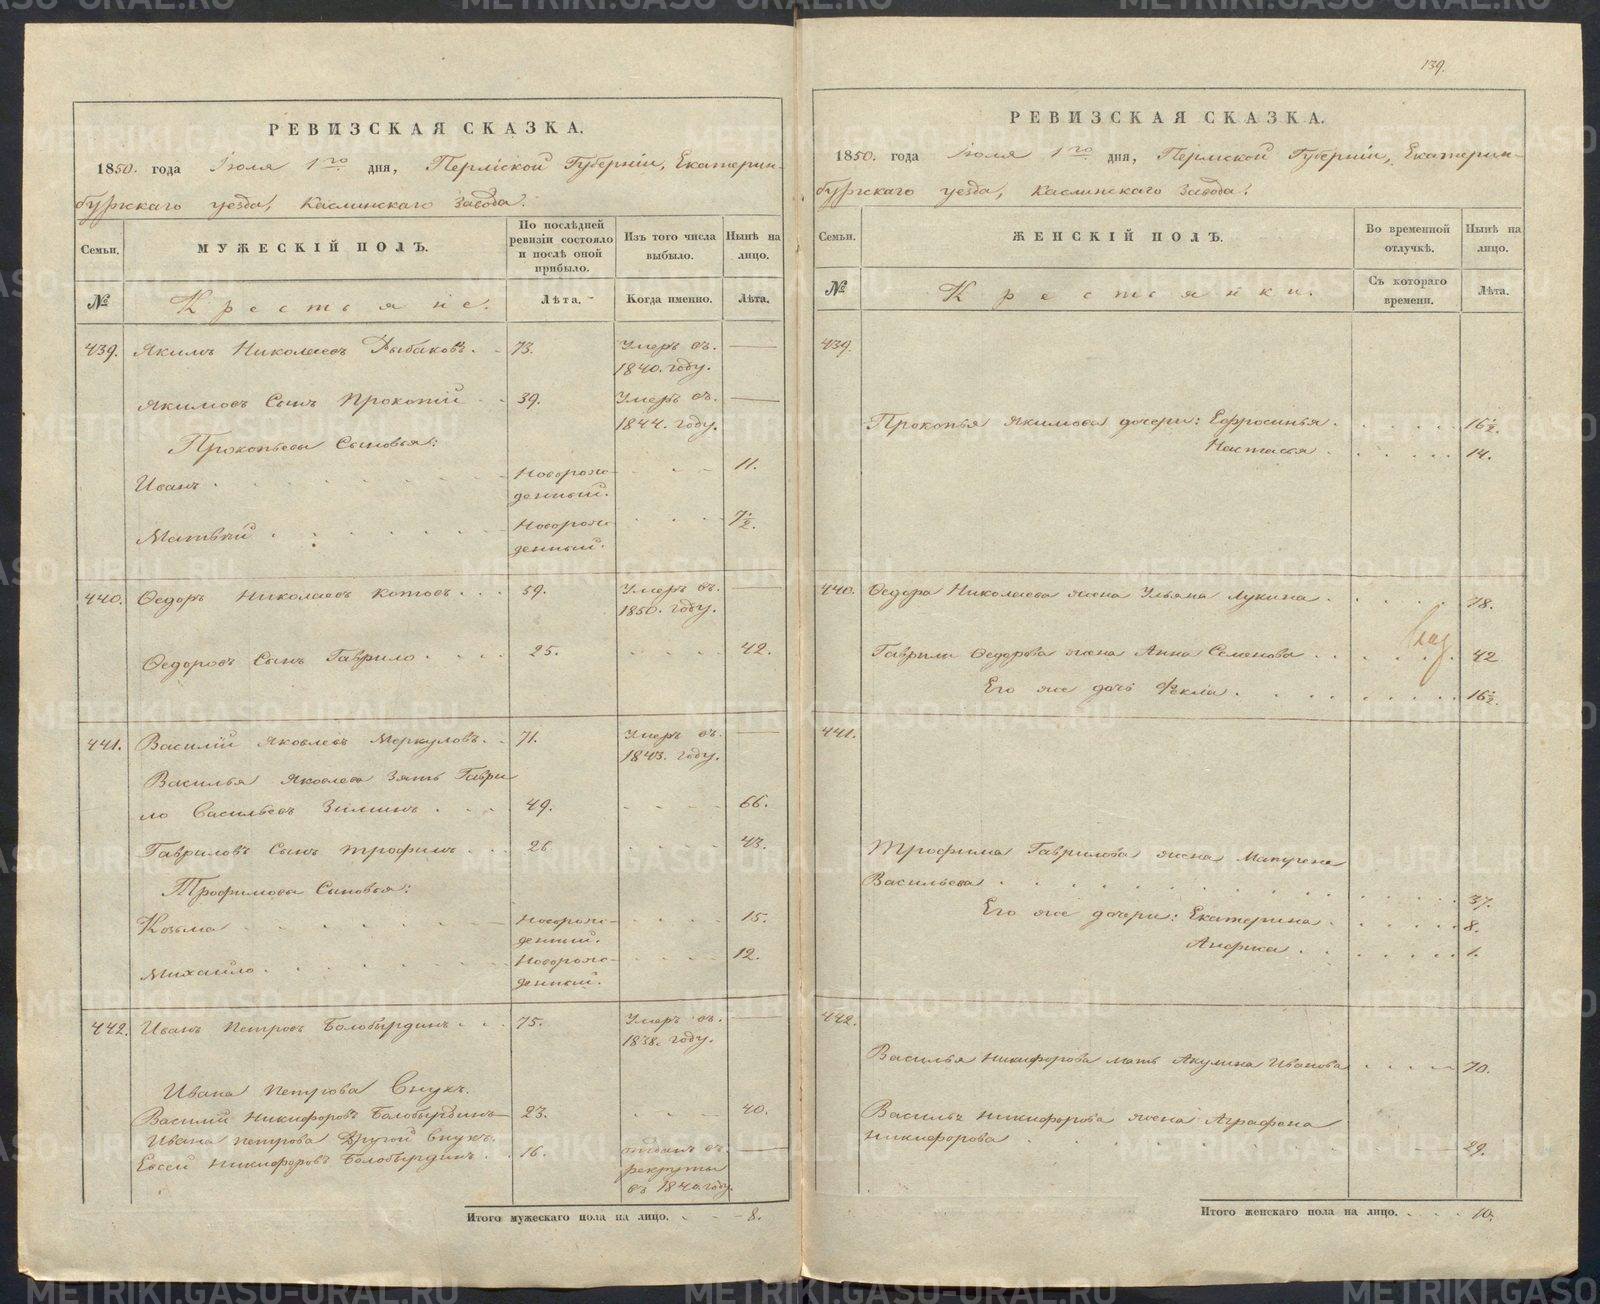 РЕВИЗСКАЯ СКАЗКА.
1850. года Іюля 1го дня, Пермской Губерніи, Екатерин-
бургскаго уезда, Каслинскаго Завода.
Семьи.
МУЖЕСКІЙ ПОЛЪ.
По послѣдней ревизіи состояло и послѣ оной прибыло.
Изъ того числа выбыло.
Нынѣ на лицо.
№
Крестьяне.
Лѣта.
Когда именно.
Лѣта.
439. Якимъ Николаевъ Рыбаковъ. 73. Умеръ въ. —
1840. году.
Якимовъ Сынъ Прокопій 39. Умеръ въ. —
1844. году.
Прокопьевы Сыновья:
Иванъ Новорож- 11.
денный.
Матвѣй Новорож- 7½.
денный.
440. Ѳедоръ Николаевъ Котовъ. 59. Умеръ въ. —
1850. году.
Ѳедоровъ Сынъ Гаврило 25. 42.
441. Василій Яковлевъ Меркуловъ. 71. Умеръ въ. —
1843. году.
Василья Яковлева Зять Гаври
ло Васильевъ Зиминъ 49. 66.
Гавриловъ Сынъ Трофимъ 26 43.
Трофимовы Сыновья:
Козьма Новорож- 15.
денный.
Михайло. Новорож- 12.
денный.
442. Иванъ Петровъ Болобырдинъ 75. Умеръ въ. —
1838. году.
Ивана Петрова Внукъ.
Василій Никифоровъ Балобырдинъ 23. 40.
Ивана Петрова Другой Внукъ.
Евсей Никифоровъ Болобырдинъ. 16. отданъ въ —
рекруты
въ 1840. году.
Итого мужескаго пола на лицо. 8.
139.
РЕВИЗСКАЯ СКАЗКА.
1850. года Іюля 1го дня, Пермской Губерніи, Екатерин-
бургскаго уезда, Каслинскаго Завода.
Семьи.
ЖЕНСКІЙ ПОЛЪ.
Во временной отлучкѣ.
Нынѣ на лицо.
№
Крестьянки.
Съ котораго времени.
Лѣта.
439.
Прокопья Якимова дочери: Ефросинья. 16½.
Настасья 14.
440. Ѳедора Николаева жена Ульяна Лукина 78.
Гаврилы Ѳедорова жена Анна Семенова 42
Его же дочь Ѳекла. 16½.
441.
Трофима Гаврилова жена Матрена
Васильева 37.
Его же дочери: Екатерина 8.
Анфиса 1.
442.
Василья Никифорова мать Акулина Иванова 70.
Василья Никифорова жена Аграфена
Никифорова 29.
Итого женскаго пола на лицо. 10.
METRIKI.GASO-URAL.RU